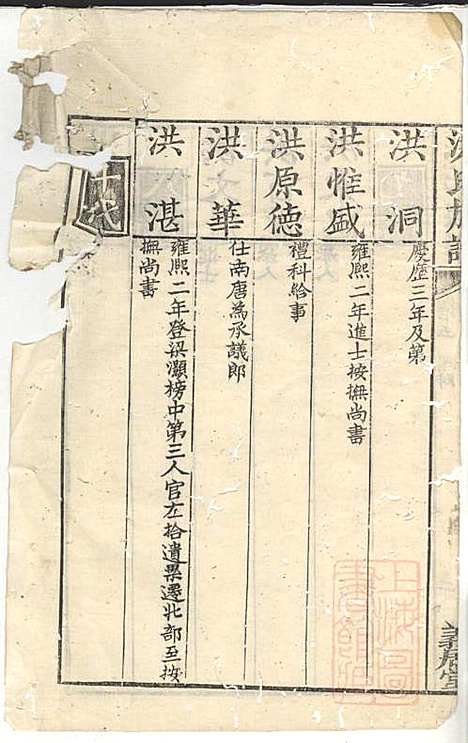 洪氏族譜
義居堂
洪洞
慶歷三年及第
洪惟盛
雍熙二年進士按撫尚書
洪原德
禮科給事
洪華
仕南唐為承議郎
洪湛
雍熙二年登梁灝榜中第三人官左拾遺累遷北部至按
撫尚書
十代
上海圖書館藏